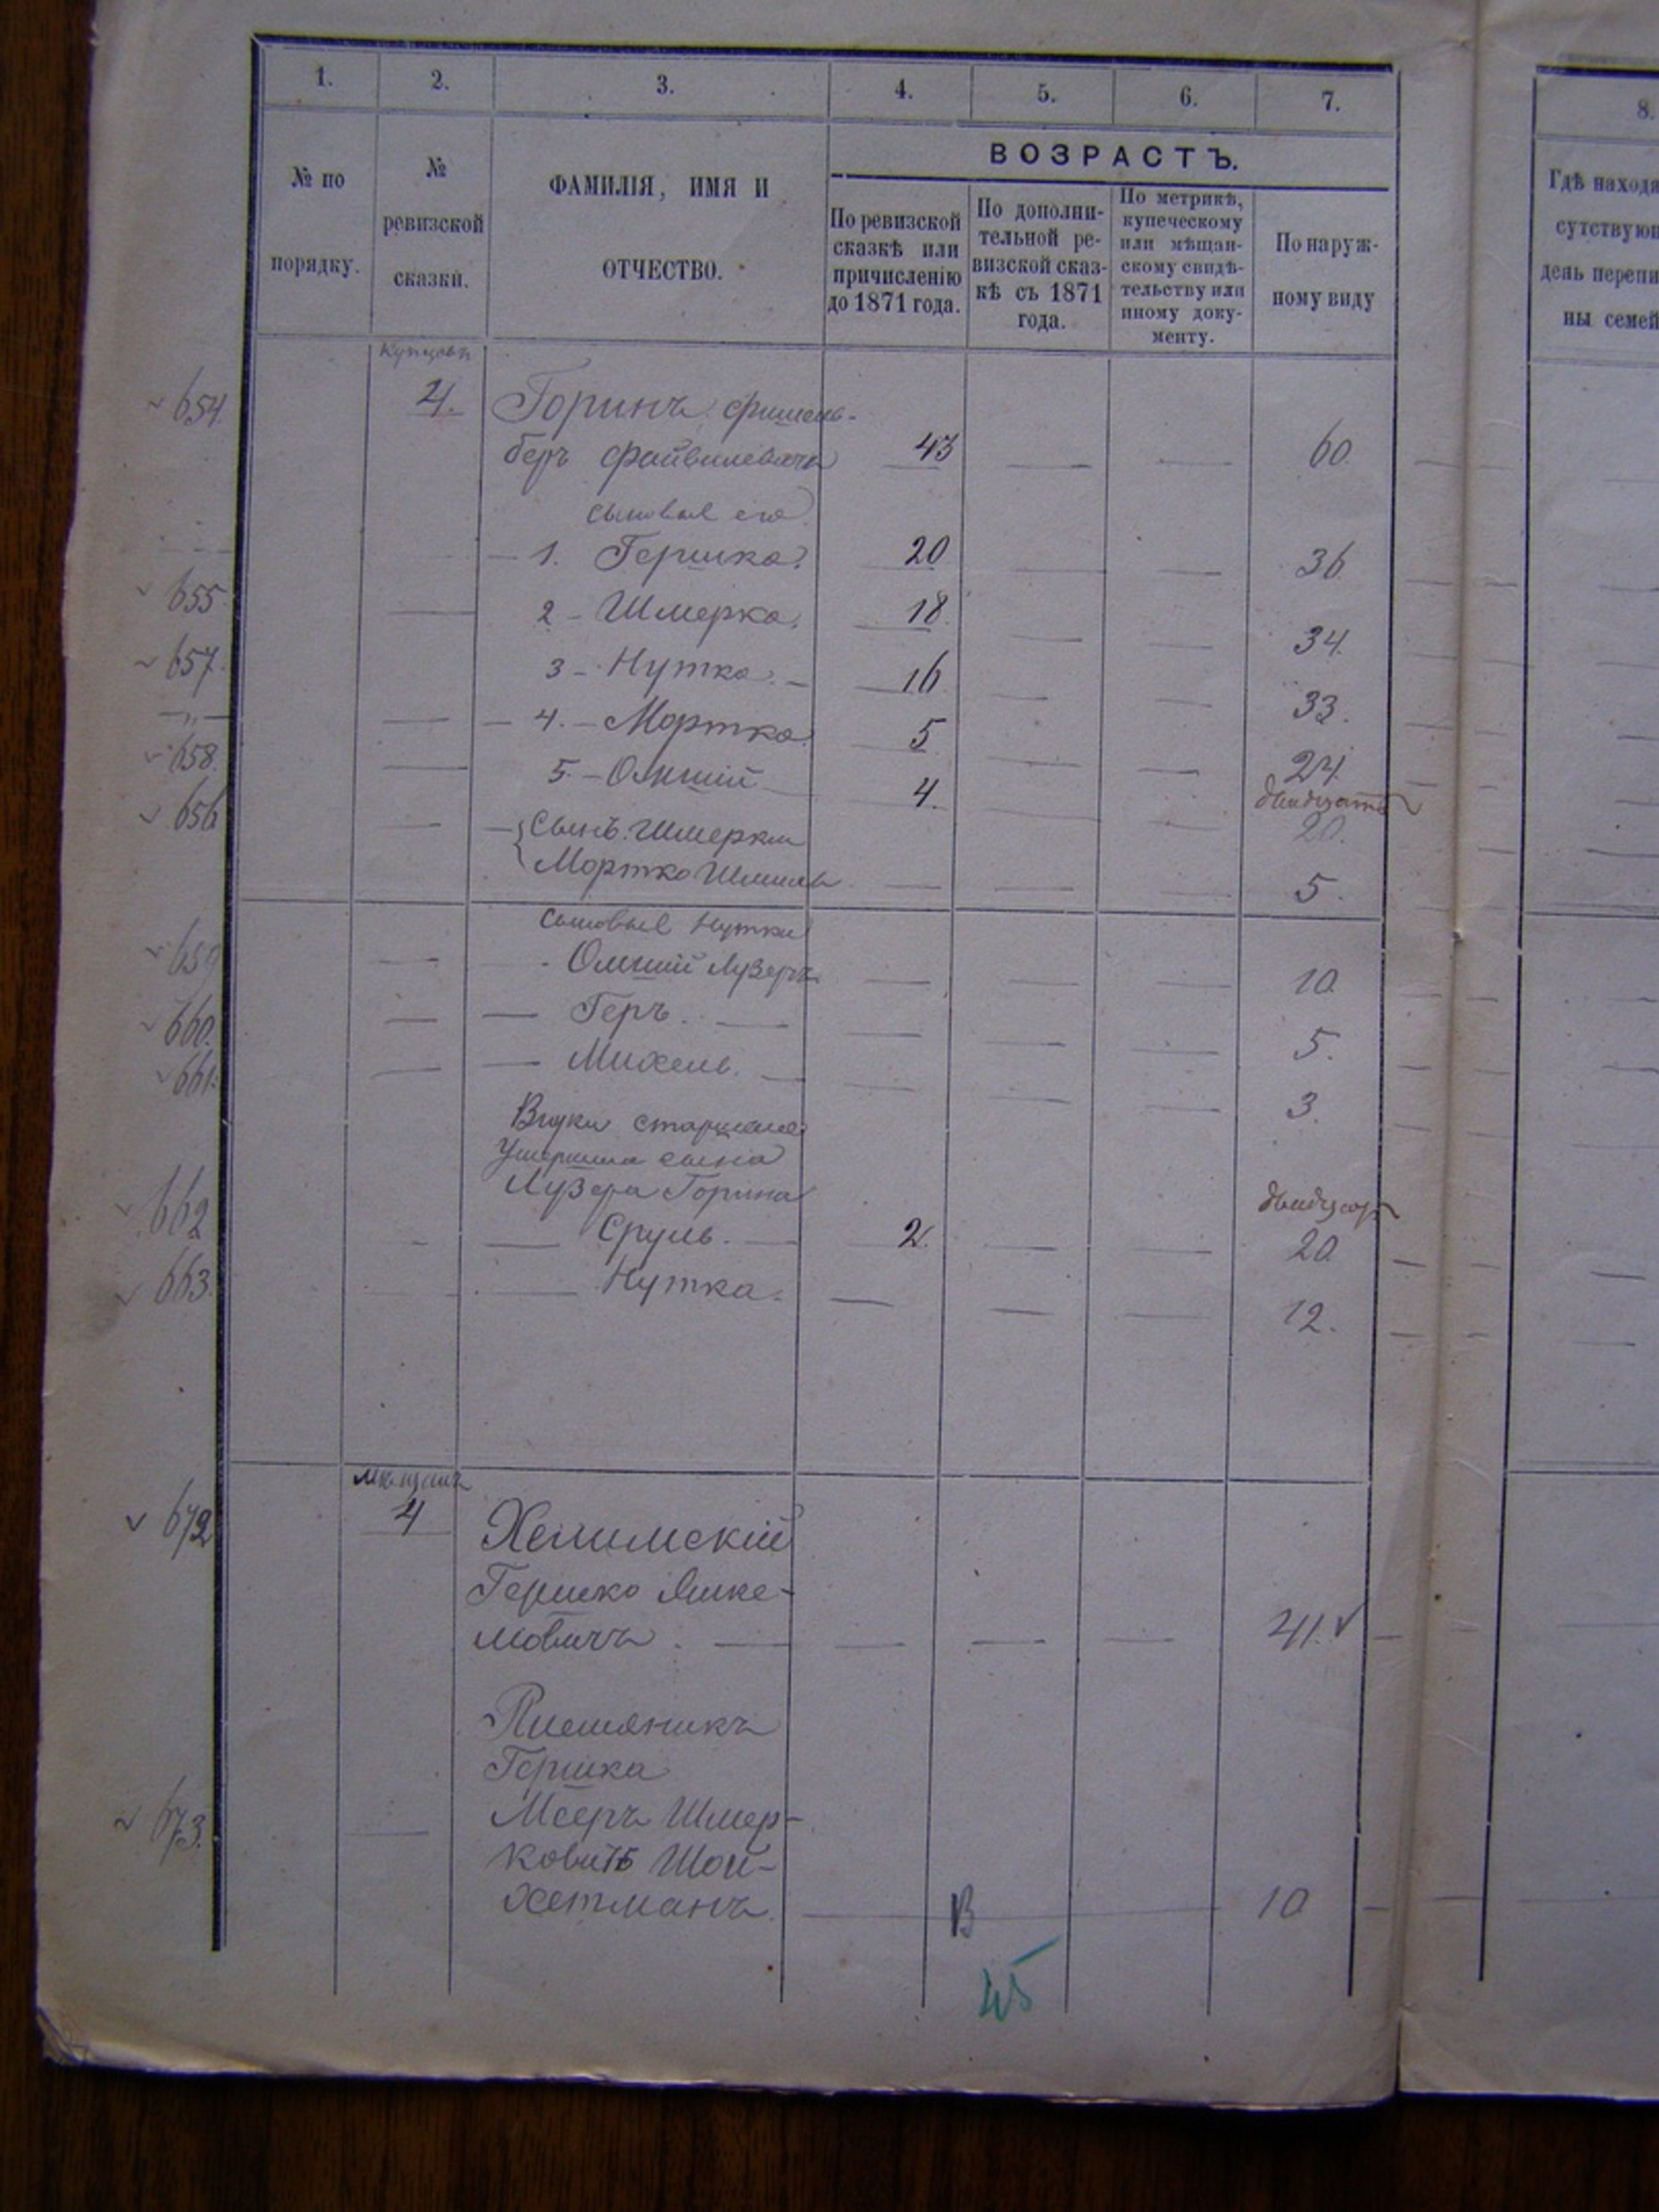 1. 2. 3. 4. 5. 6. 7. 8.
№ по порядку.
№ ревизской сказки.
ФАМИЛІЯ, ИМЯ И ОТЧЕСТВО.
ВОЗРАСТЪ.
По ревизской сказкѣ или причисленію до 1871 года.
По дополни-
тельной ре-
визской сказ-
кѣ съ 1871
года.
По метрикѣ,
купеческому
или мѣщан-
скому свидѣ-
тельству или
иному доку-
менту.
По наруж-
ному виду
Гдѣ находя
сутствующ
день перепи
ны семей
Купцовъ
654. 4. Горинъ Фишель-
беръ Файвилевичъ 43 — — 60.
сыновья его
1. Гершка. 20 — — 36.
655. — 2 - Шмерка. 18. — — 34.
657. 3 - Нутка. — 16 — — 33.
—„— — 4. - Мортка 5 — — 24.
658. — 5. - Ошій — 4. — — двадцать 20.
656 — Сынъ Шмерки
Мортко Шмиль — — — 5.
сыновья Нутки
659 — Ошій Лузеръ — — — 10
660. — Геръ. — — — — 5.
661. — Михель. — — — — 3.
Внуки старшаго
умерша сына
Лузера Горина
662 — Сруль. — 2. — — двадцать 20.
663. — Нутка. — — — 12.
мѣщанъ
672 4 Хешимскій
Гершко Янке-
левичъ. — — — — 41.
Племянникъ
Гершка
673. — Мееръ Шмер-
ковичъ Шой-
хетманъ. — В — 10
45